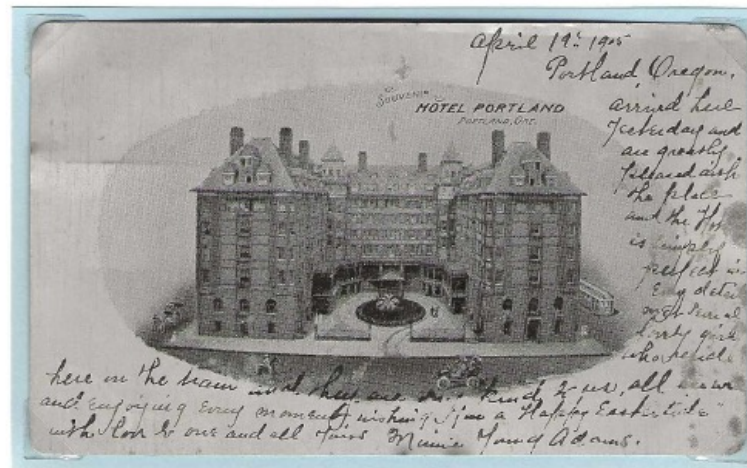 April 19th 1905
Portland Oregon.
SOUVENIR
HOTEL PORTLAND
PORTLAND, ORE.
arrived here
Yesterday and
are greatly
pleased with
the place
and the
is simply
perfect in
Every
lovely girl
who reside
here on the train and they are so kind to us, all
and enjoying every moment wishing you a Happy Eastertide
with love to one and all Yours Minnie Young Adams.